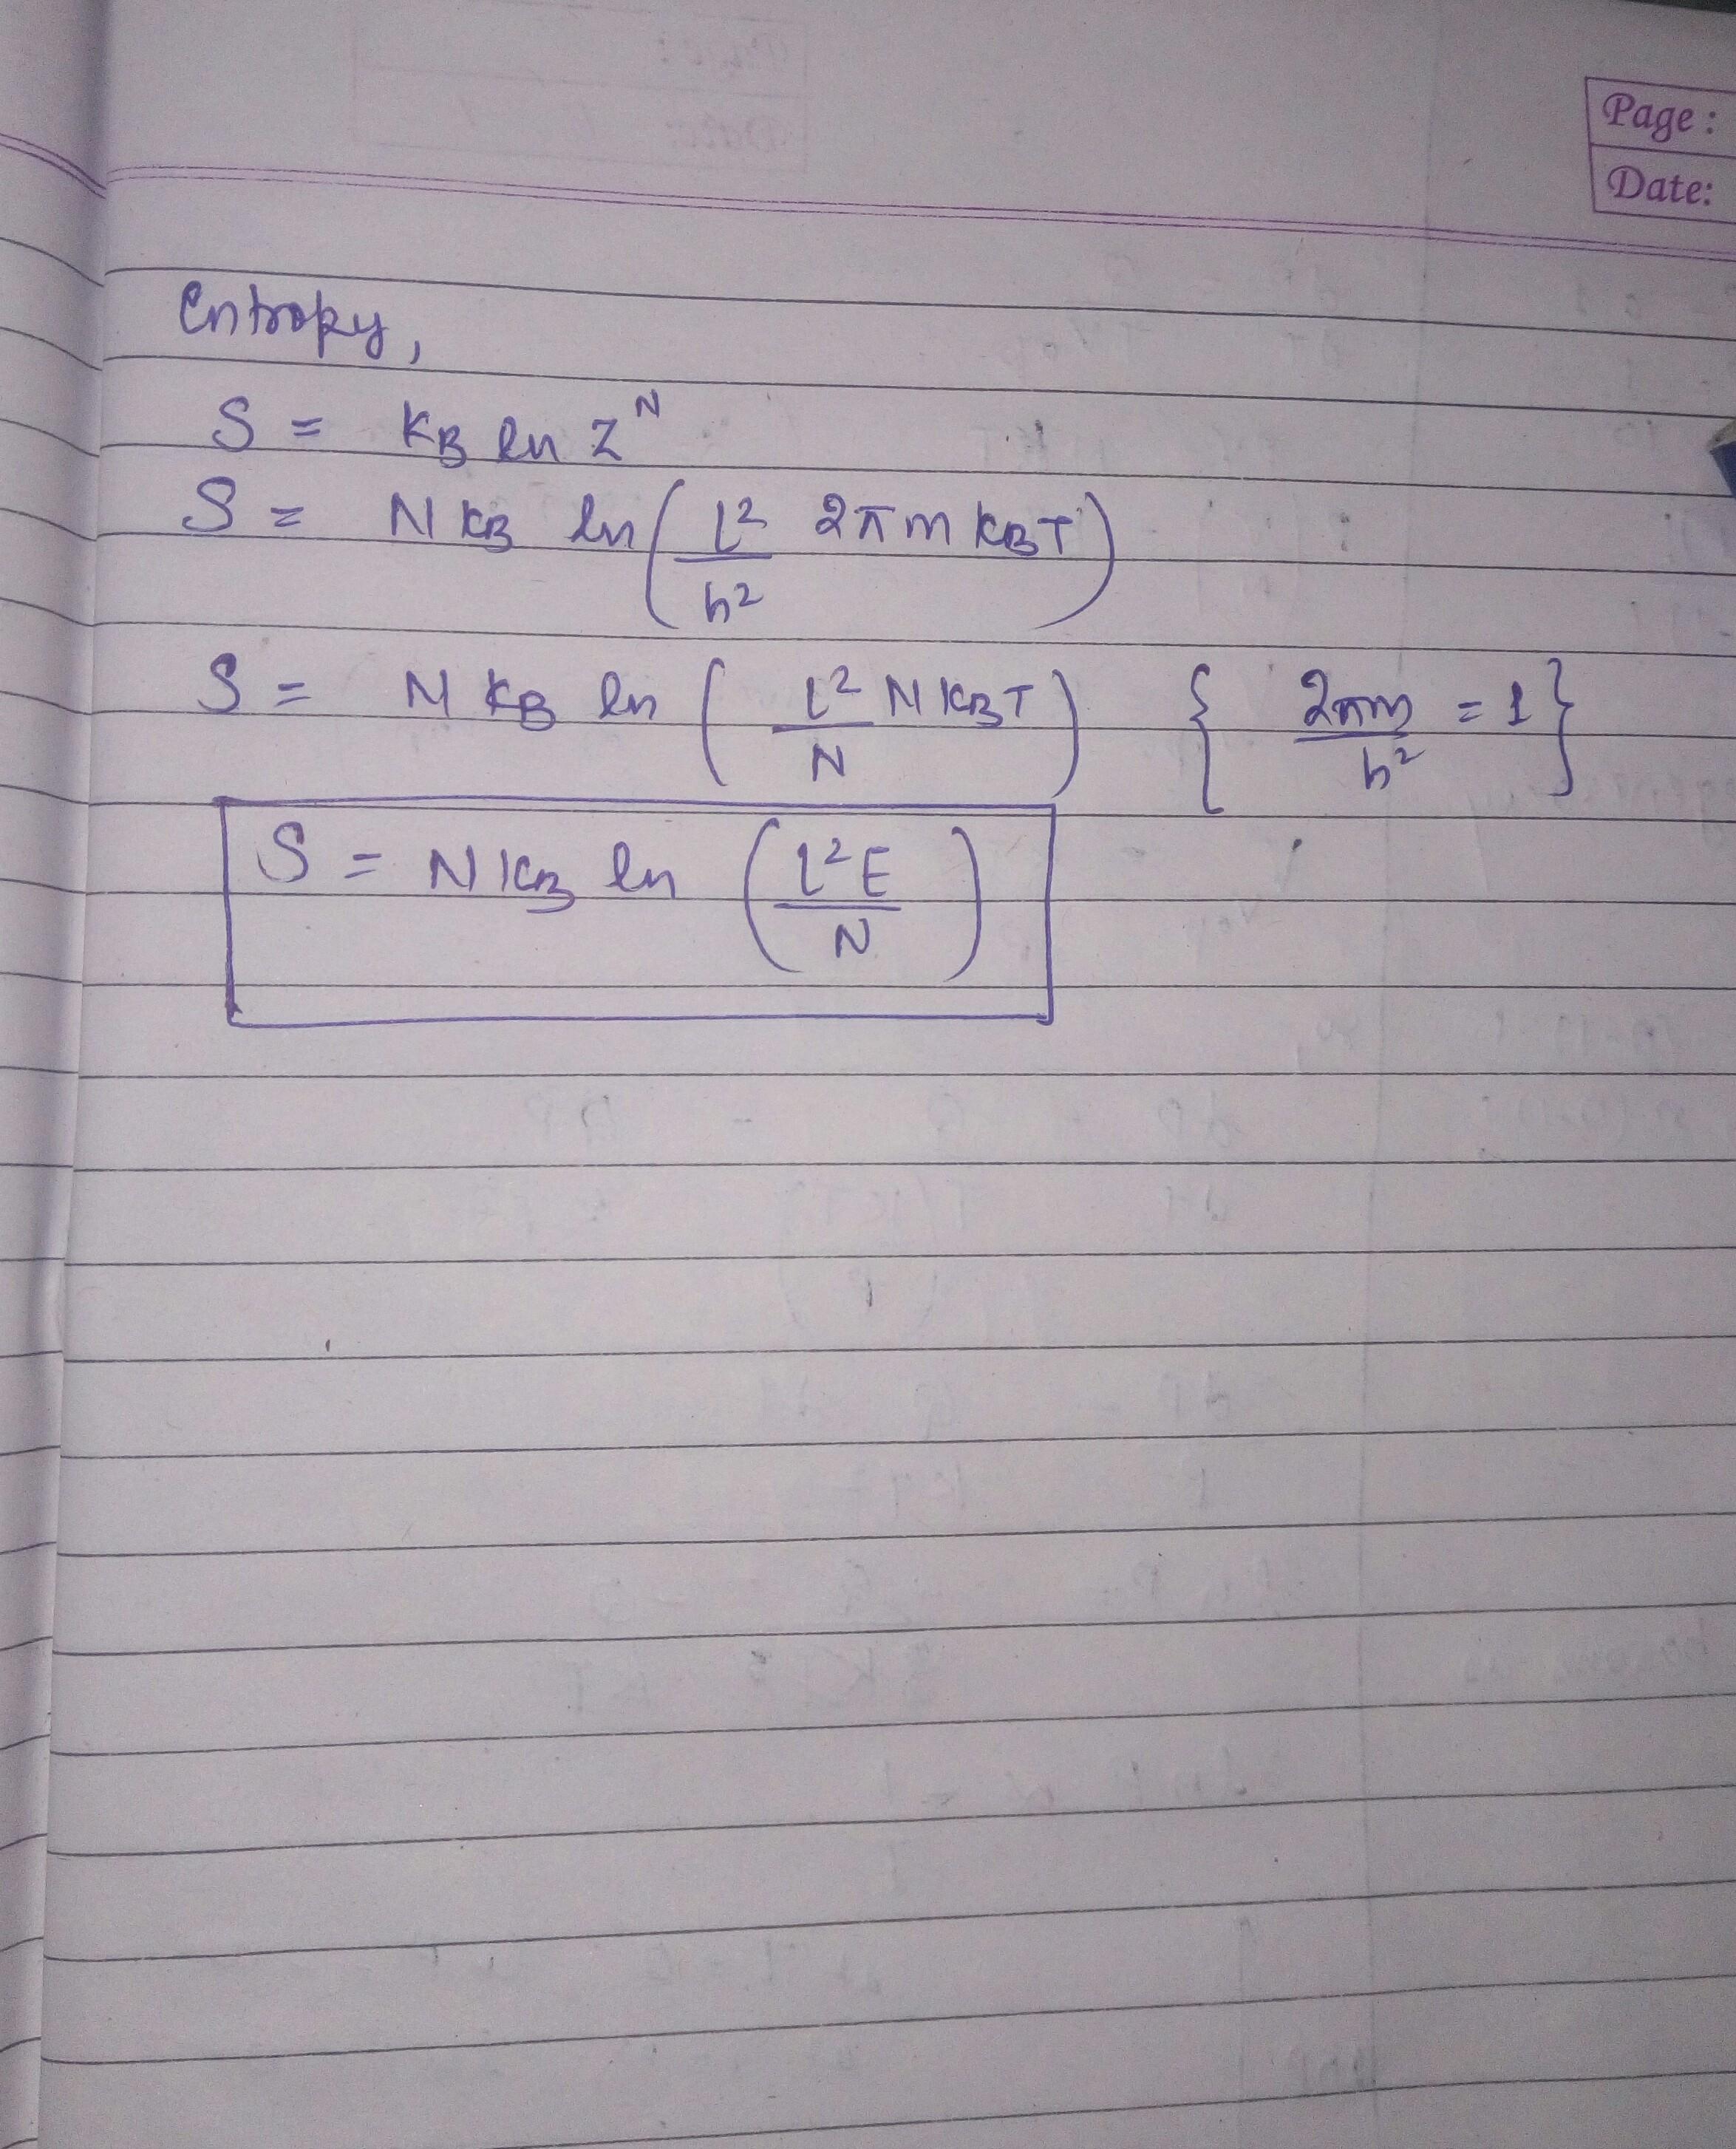 Page:
Date:
Entropy,
S = KB ln Z^N
S = N KB ln (L²/h² 2πm KBT)
S = N KB ln (L² N KBT / N) { 2πm/h² = 1 }
S = N KB ln (L²E / N)